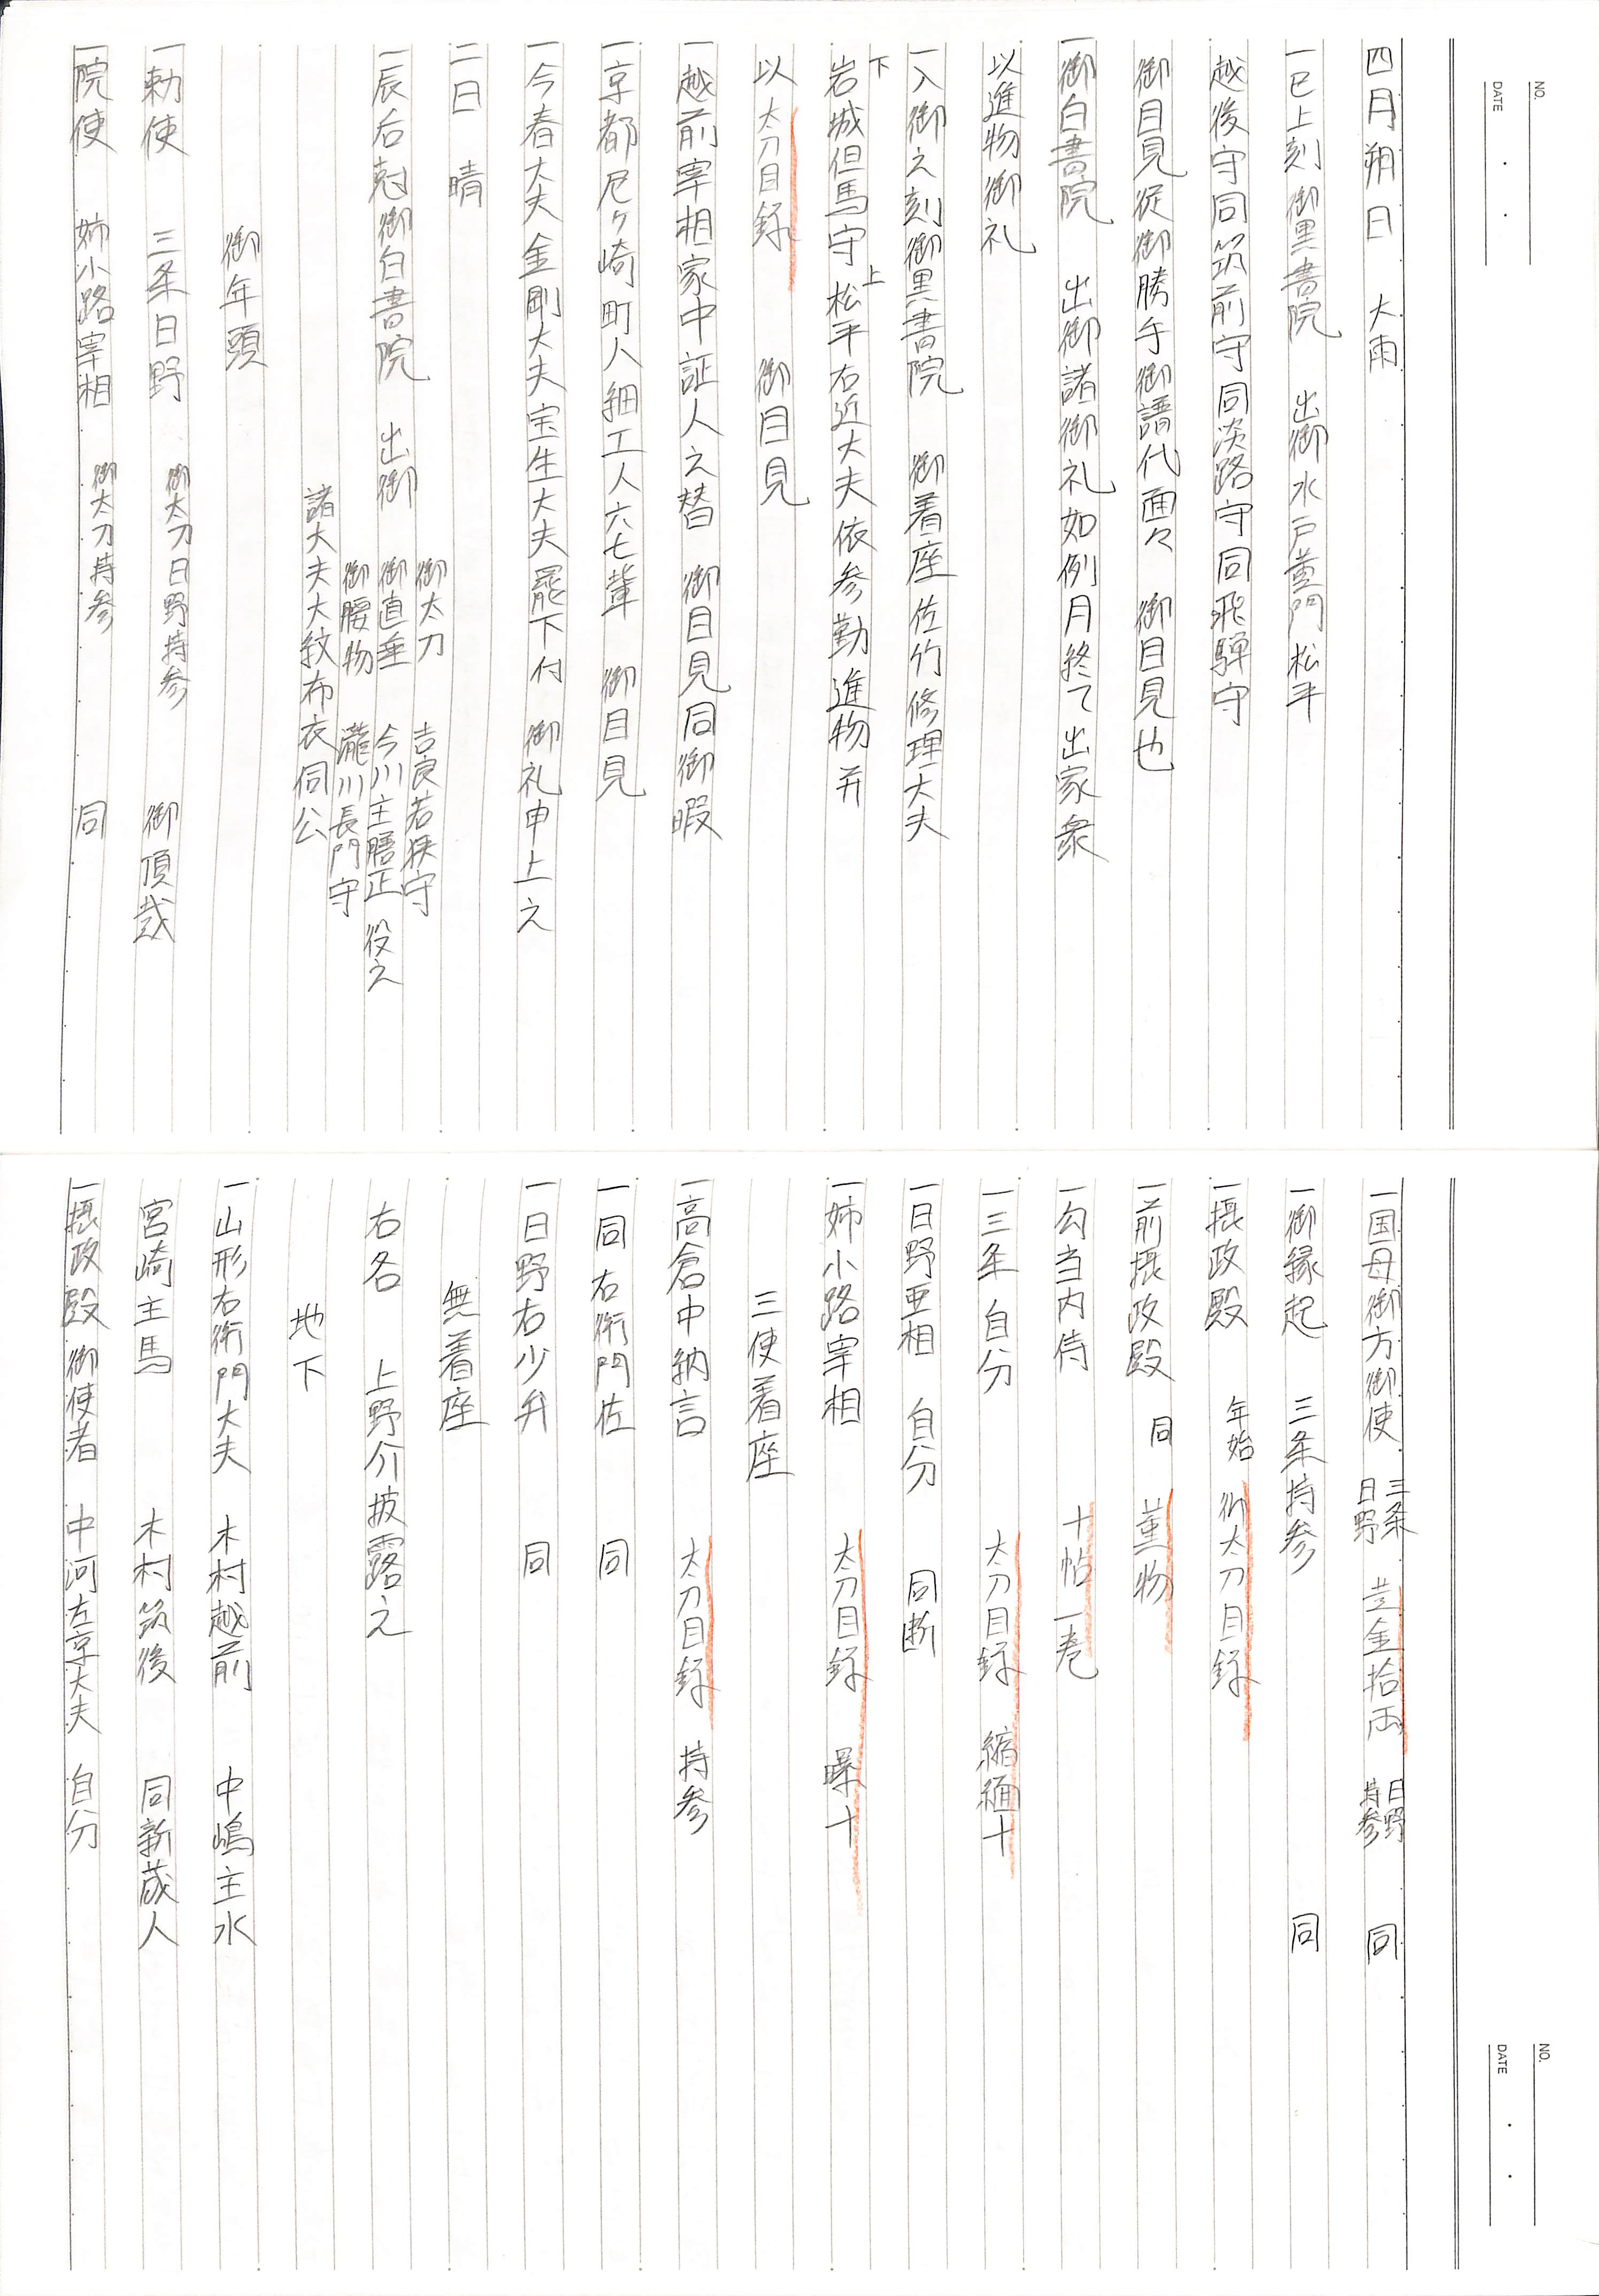 NO.
DATE ・ ・
四月朔日 大雨
一巳上刻 御黒書院 出御 水戸黄門 松平
越後守 同筑前守 同淡路守 同飛騨守
御目見 従御勝手 御譜代面々 御目見也
一御白書院 出御 諸御礼如例月 終て出家衆
以進物御礼
一入御之刻 御黒書院 御着座 佐竹修理大夫
下 上
岩城但馬守 松平右近大夫 依参勤進物并
以太刀目録 御目見
一越前宰相家中証人之替 御目見 同御暇
一京都尼ヶ崎町人細工人六七輩 御目見
一今春大夫 金剛大夫 宝生大夫 罷下付 御礼申上之
二日 晴
御太刀 吉良若狭守
一辰后尅 御白書院 出御 御直垂 今川主膳正 役之
御腰物 瀧川長門守
諸大夫大紋布衣伺公
御年頭
一勅使 三条日野 御太刀 日野持参 御頂戴
一院使 姉小路宰相 御太刀持参 同
NO.
DATE ・ ・
一国母御方御使 三条 日野 黄金拾両 日野 持参 同
一御縁起 三条持参 同
一摂政殿 年始 御太刀目録
一前摂政殿 同 薫物
一勾当内侍 十帖一巻
一三条 自分 太刀目録 縮緬十
一日野亜相 自分 同断
一姉小路宰相 太刀目録 曝十
三使着座
一高倉中納言 太刀目録 持参
一同右衛門佐 同
一日野右少弁 同
無着座
右各 上野介披露之
地下
一山形右衛門大夫 木村越前 中嶋主水
宮崎主馬 木村筑後 同新蔵人
一摂政殿御使者 中河左京大夫 自分